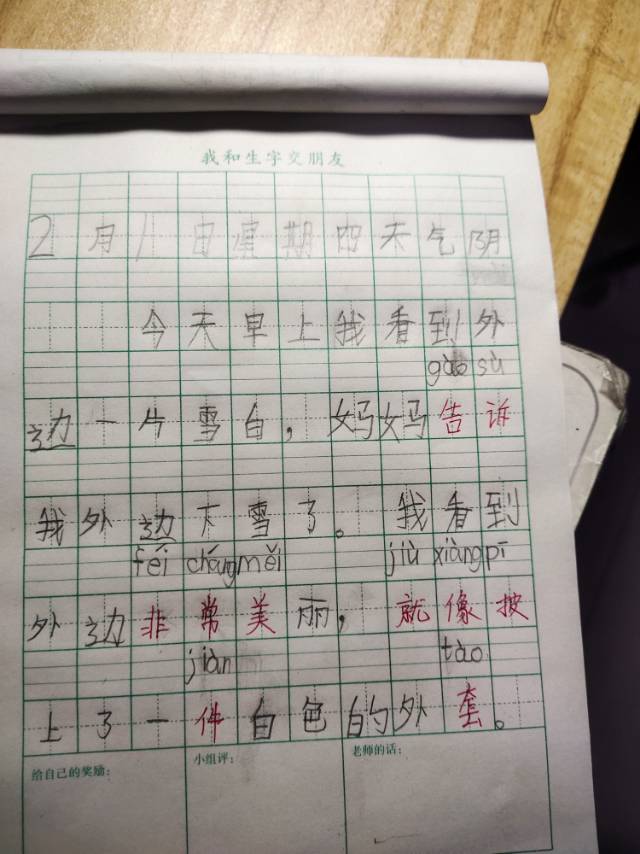 我和生字交朋友
2月1日星期四天气阴
今天早上我看到外
gào sù
边一片雪白，妈妈告诉
我外边下雪了。我看到
fēi cháng měi jiù xiàng pī
外边非常美丽，就像披
jiàn tào
上了一件白色的外套。
给自己的奖励： 小组评： 老师的话：